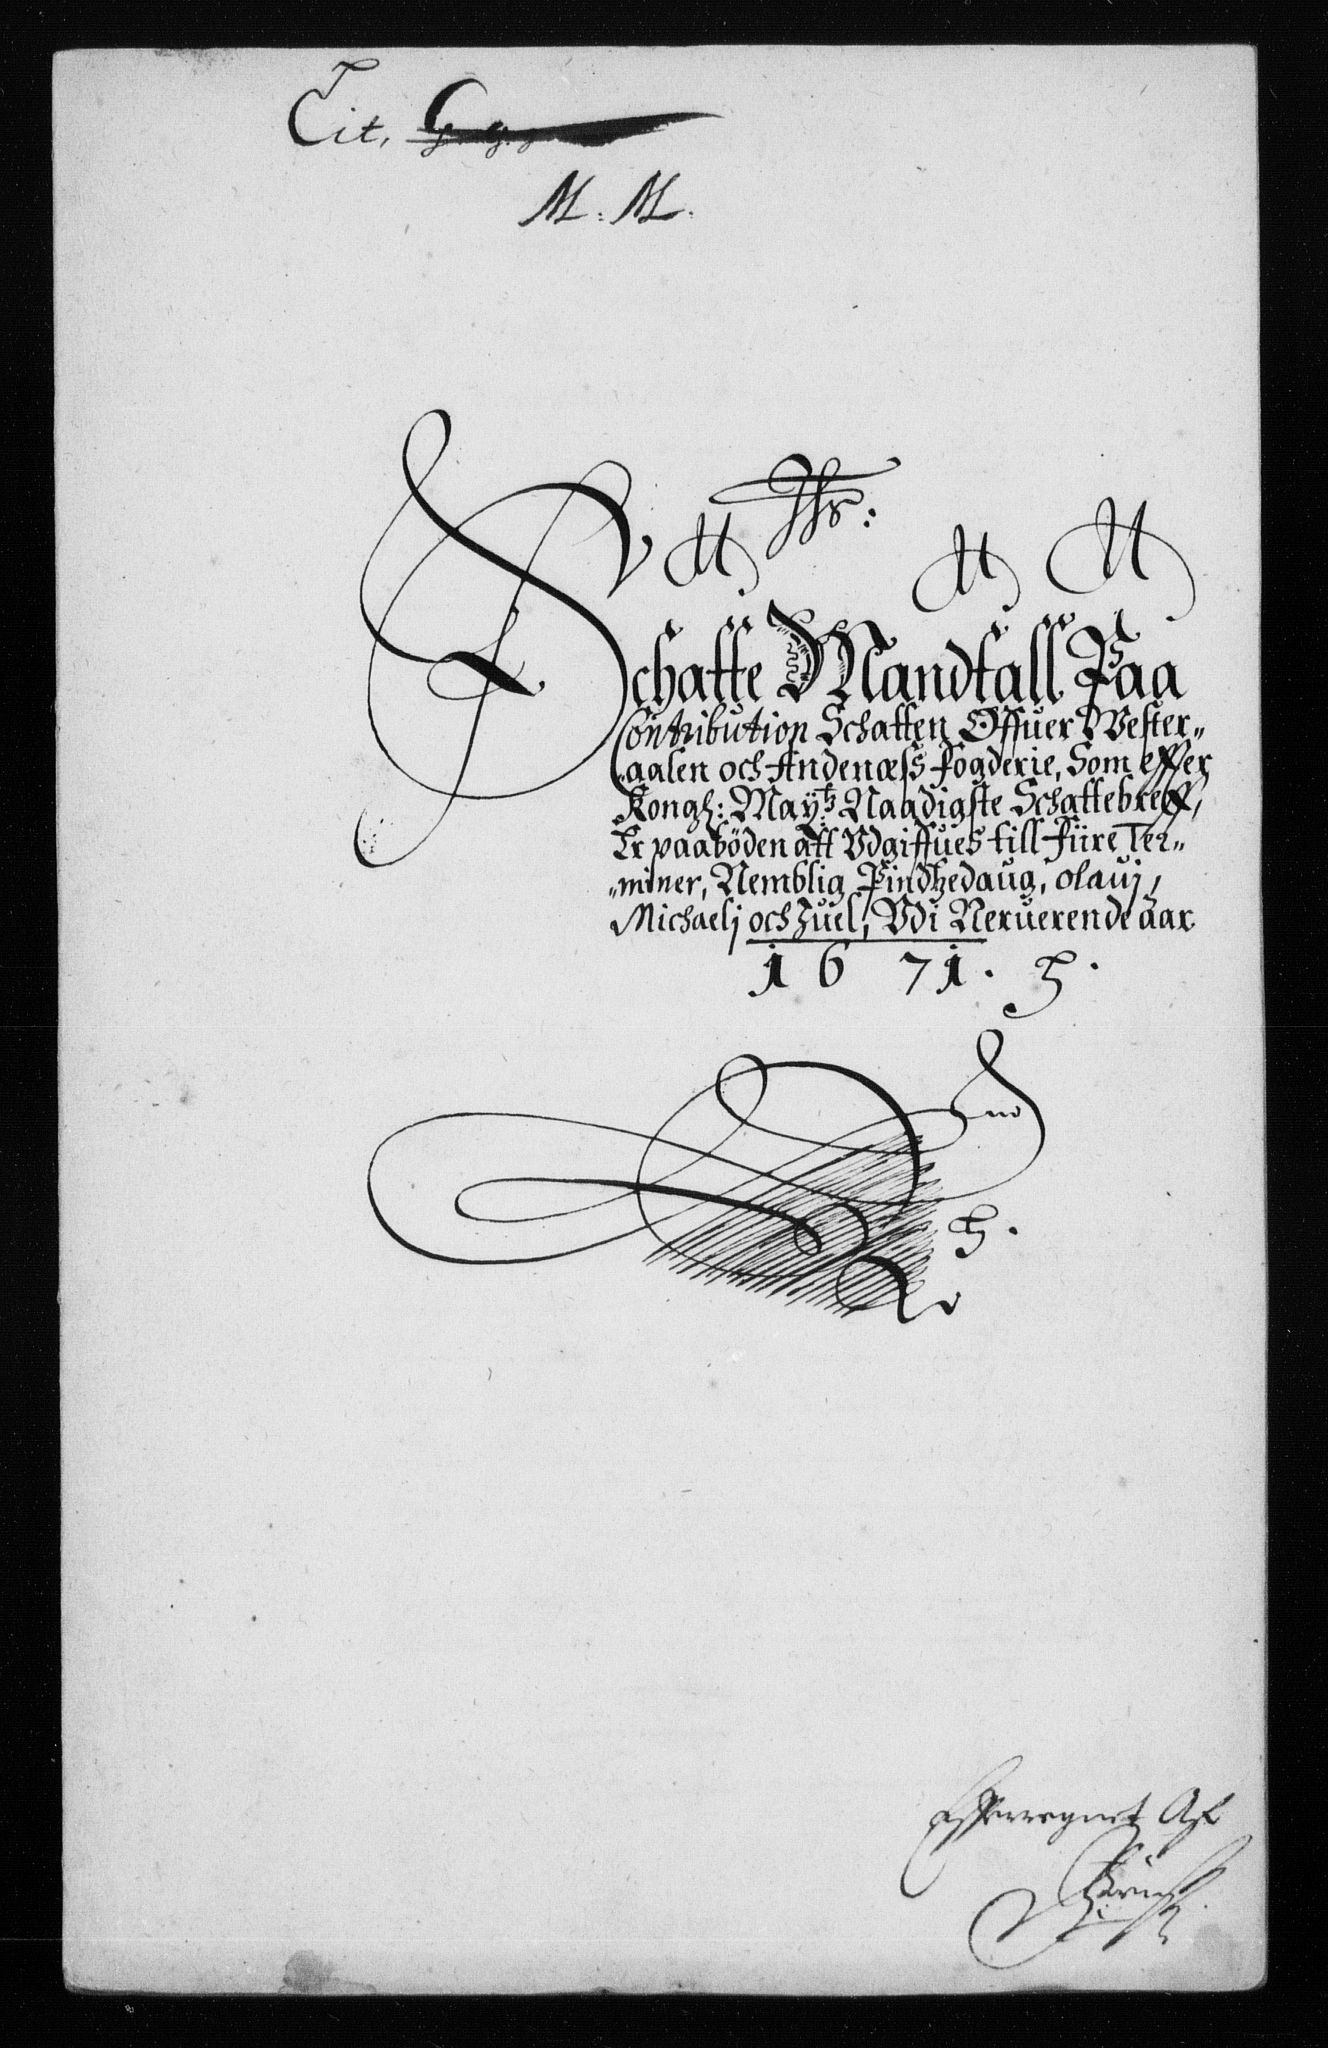 Lit. G. g.
M. M.
Jhs:
Schatte Mandtall Paa
Contribution Schatten Offuer Wester„
„aalen och Andenæss fogderie, Som effter
Kongl: Maytz Naadigste Schattebreff,
Er paaböden att Vdgiffues till fiire Ter„
„miner, Nemblig Pindtzedaug, olauj,
Michaelj och Juel, Vdi Neruerende aar
1671.
Efterregnet Af